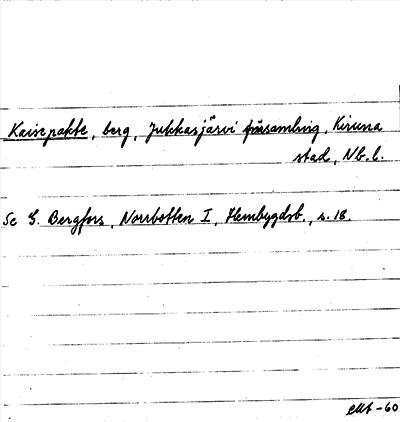 Kaisepakte, berg, Jukkasjärvi församling, Kiruna
stad, Nb.l.
Se G. Bergfors, Norrbotten I, Hembygdsb., s. 18.
-60